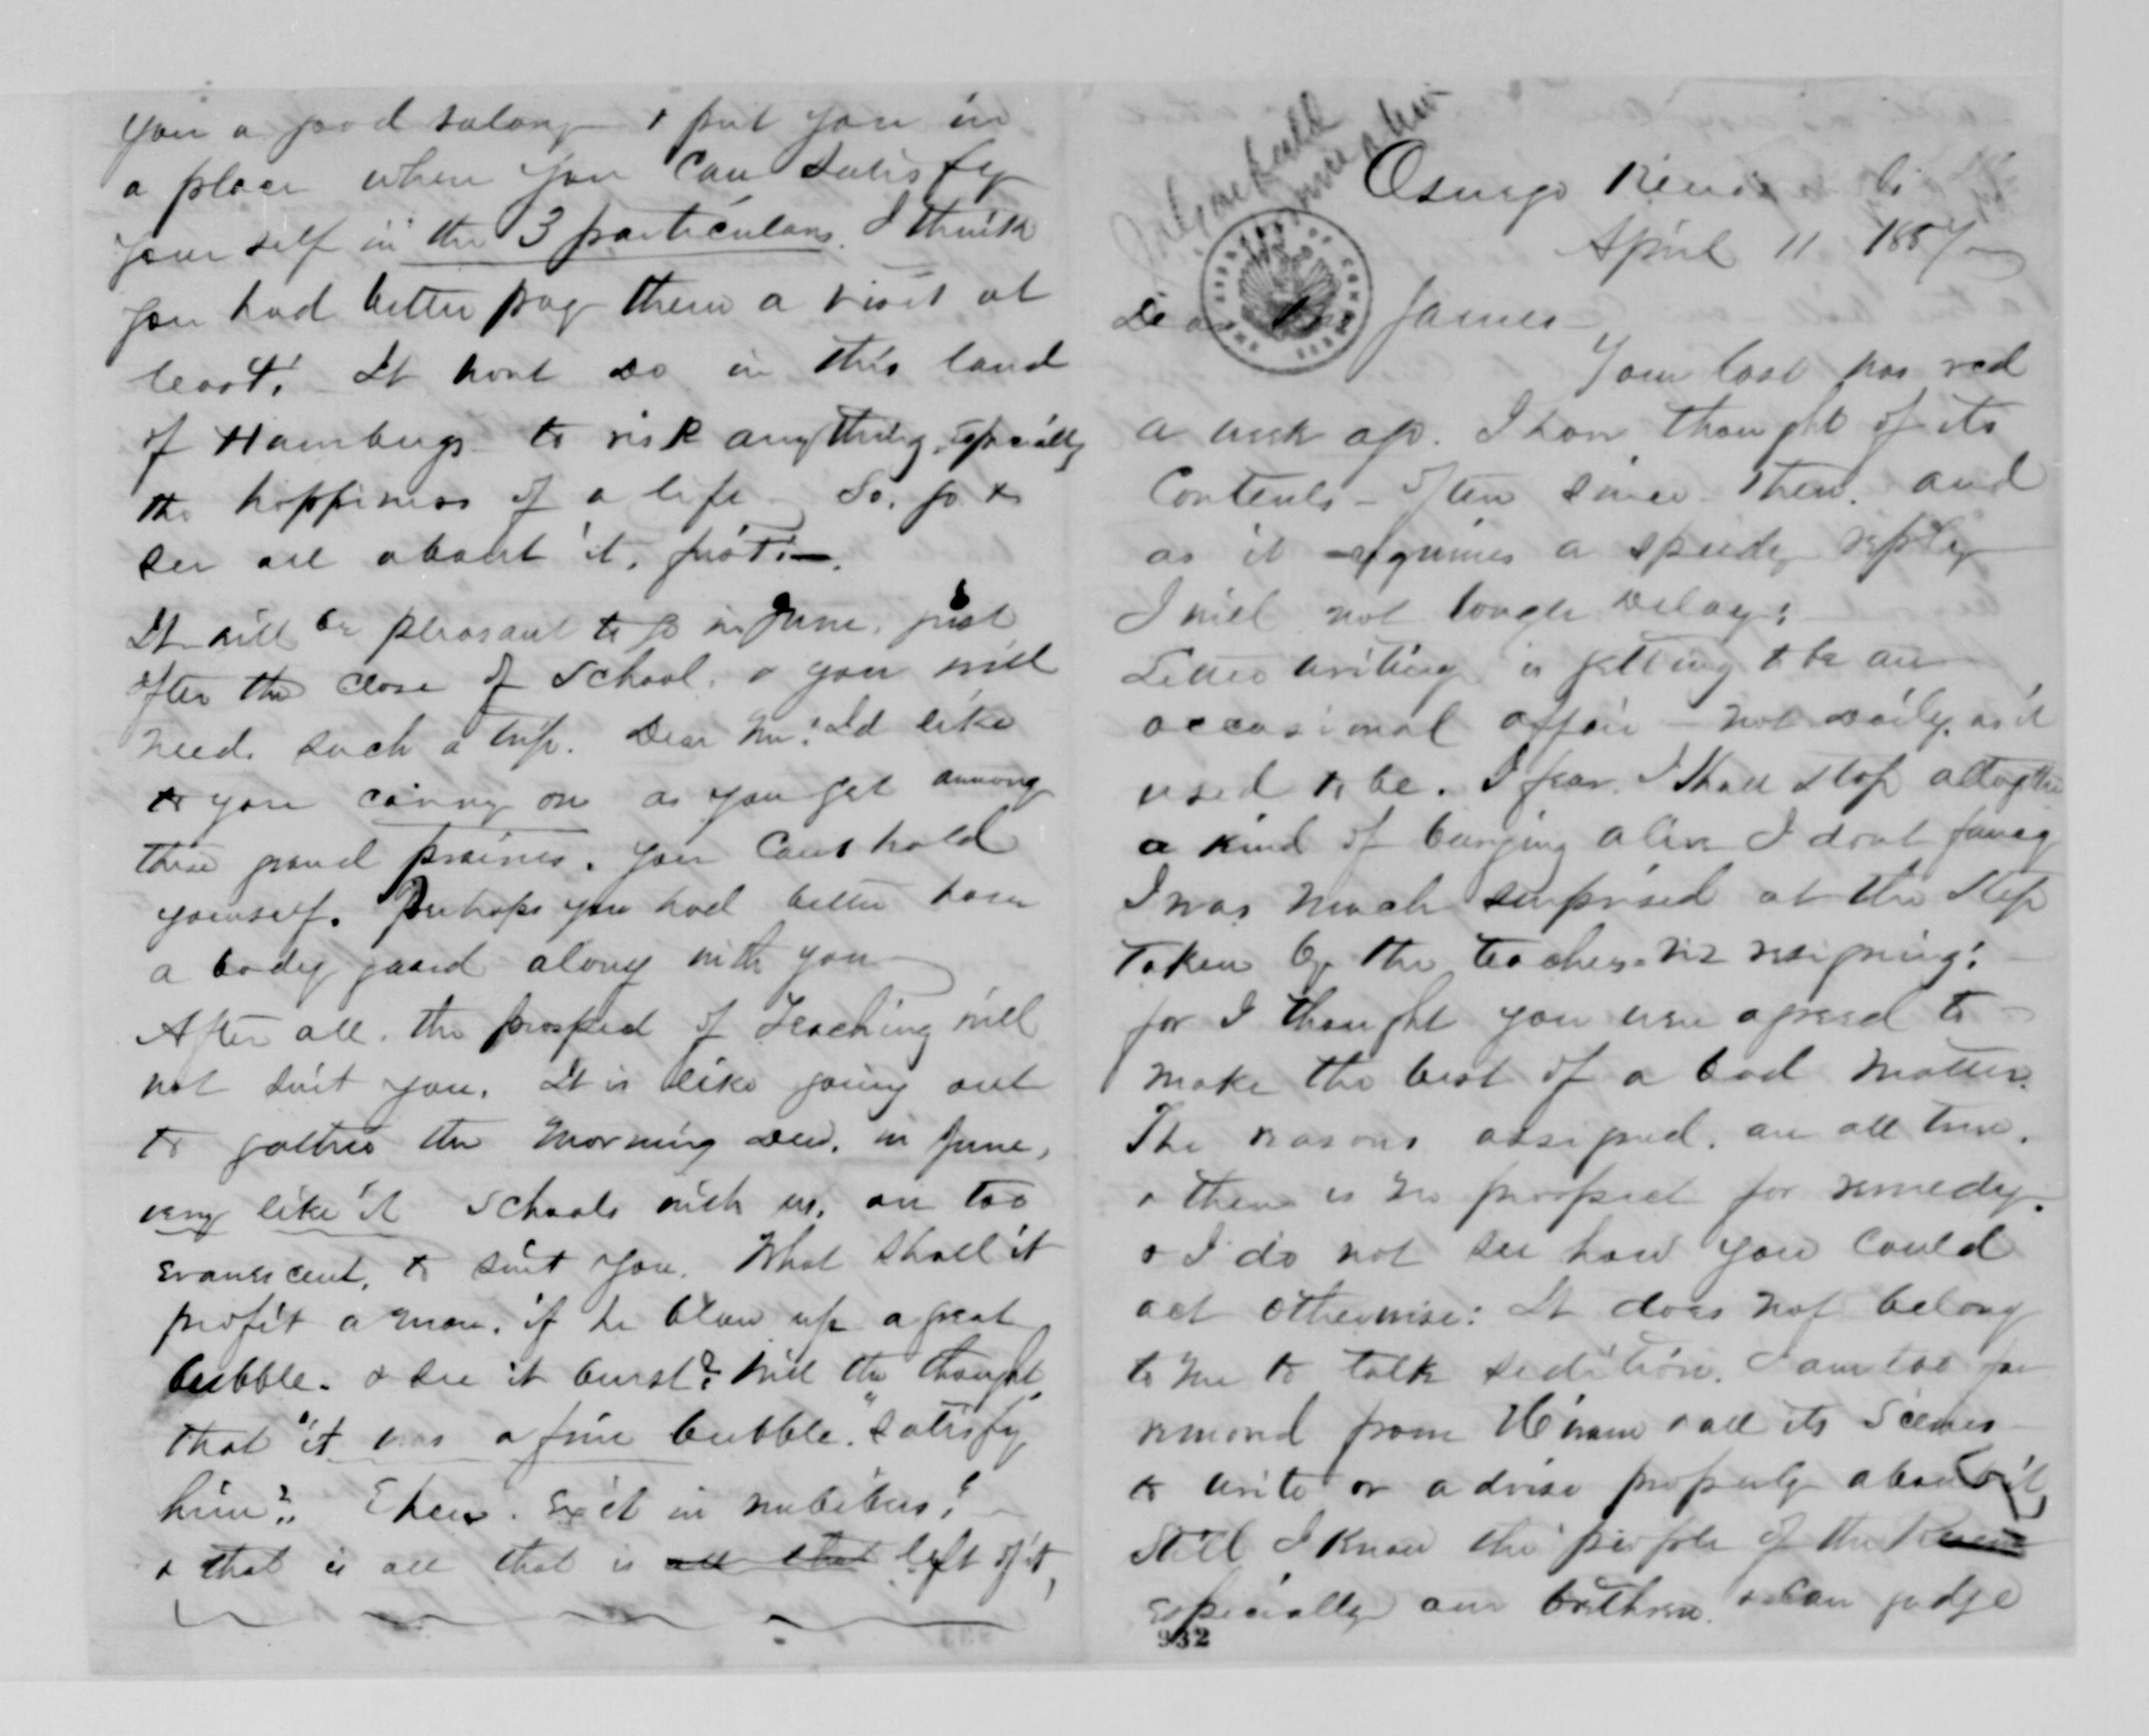 you a good salary & put you in
a place where you can satisfy
yourself in the 3 particulars. I think
you had better pay them a visit at
least! It wont do in this land
of Humbugs to risk anything, especially
the happiness of a life. So, go &
see all about it, first.
It will be pleasant to go in June, just
after the close of School, & you will
need such a trip. Dear me! Id like
to you on as you get among
these grand prairies. You cant hold
yourself. Perhaps you had better have
a body guard along with you
After all, the prospect of Teaching will
not suit you. It is like going out
to gather the morning dew, in June,
very like it Schools with us, are too
evanescent, to suit you. What shall it
profit a man, if he blow up a great
bubble. & see it burst? Will the thought
that "it was a fine bubble." satisfy
him? Eheu. Exit in nubibus!
& that is all that is all that left of it,
Oswego
April 11 1857
Dear Bro James
Your last was recd
a week ago. I have thought of its
Contents – often since then, and
as it requires a speedy reply
I will not longer delay:
Letter writing is getting to be an
occasional affair – not daily, as it
used to be. I fear I shall stop altogether
a kind of burying alive I dont fancy
I was much surprised at the step
taken by the teachers viz resigning:
for I thought you were agreed to
make the best of a bad matter.
The reasons assigned, are all true,
& there is no prospect for remedy.
& I do not see how you could
act otherwise: It does not belong
to me to talk sedition. I am too far
removed from Hiram & all its Scenes
to write or advise properly about it,
Still I know the people of the
especially our brethren. & can judge
932